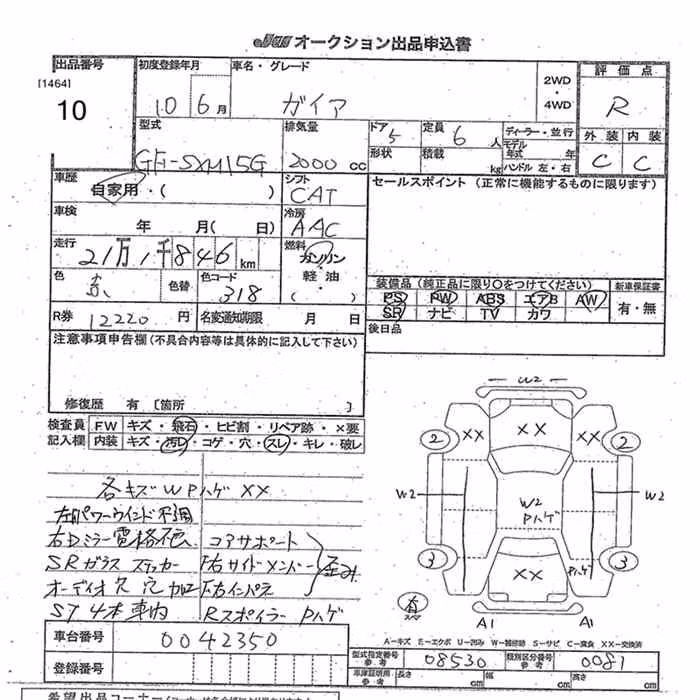 JAA オークション出品申込書
出品番号
[1464]
10
初度登録年月
10 6月
車名・グレード
ガイア
2WD
・
4WD
評価点
R
外装 内装
C C
型式
GF-SXM15G
排気量
2000 cc
ドア 5
形状
定員 6 人
積載 kg
ディーラー・並行
モデル年式 年
ハンドル 左・右
車歴
自家用・( )
シフト
CAT
セールスポイント(正常に機能するものに限ります)
車検
年 月( 日)
冷房
AAC
走行
21万1千846km
燃料
ガソリン
軽油
・
( )
色
色替
色コード
318
装備品(純正品に限り○をつけてください)
新車保証書
PS PW ABS エアB AW
SR ナビ TV カワ
有・無
R券 12220円
名変通知期限 月 日
後日品
注意事項申告欄(不具合内容等は具体的に記入して下さい)
修復歴 有〔箇所 〕
検査員記入欄
FW キズ・飛石・ヒビ割・リペア跡・×要
内装 キズ・汚レ・コゲ・穴・スレ・キレ・破レ
各キズWPハゲ XX
左前パワーウインド不調
右Dミラー電格不
SRガラス ステッカー
オーディオ欠 穴 加工
ST4本車内
コアサポート
F右サイドメンバー
F右インパネ
歪み
Rスポイラー Pハゲ
W2
XX XX XX
2 2
W2 W2
W2
Pハゲ
3 3
XX
Pハゲ
有
スペア
A1 A1
A-キズ E-エクボ U-凹み W-補修跡 S-サビ C-腐食 XX-交換済
車台番号
0042350
登録番号
型式指定番号
参考
08530
類別区分番号
参考
0081
車庫証明用
参考
長さ cm
幅 cm
高さ cm
希望出品コーナー